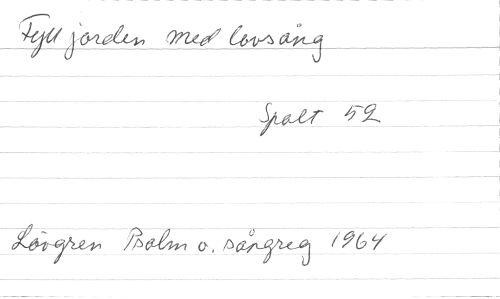 Fyll jorden med lovsång
Spalt 52
Lövgren Psalm o. sångreg 1964